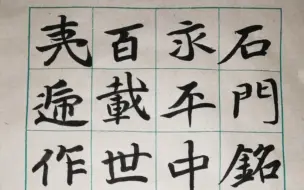 石門銘
永平中
百載世
夷遞作